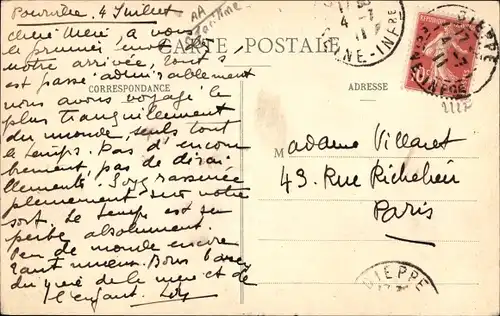 Pourville, 4 Juillet
chère Mère, à vous
la première
notre arrivée, tout s'
est passé admirablement
nous avons voyagé le
plus tranquillement
du monde, seuls tout
le temps. Pas d'encom
brement, pas de dérai
llements. Soyez rassurée
pleinement sur notre
sort. Le temps est su
perbe absolument.
Peu de monde encore
tant mieux. Bons baisers
de la mère et de
l'enfant.
CARTE POSTALE
CORRESPONDANCE
ADRESSE
Madame Villaret
43. Rue Richelieu
Paris
DIEPPE
17
4 -7
11
NE-INFRE
DIEPPE